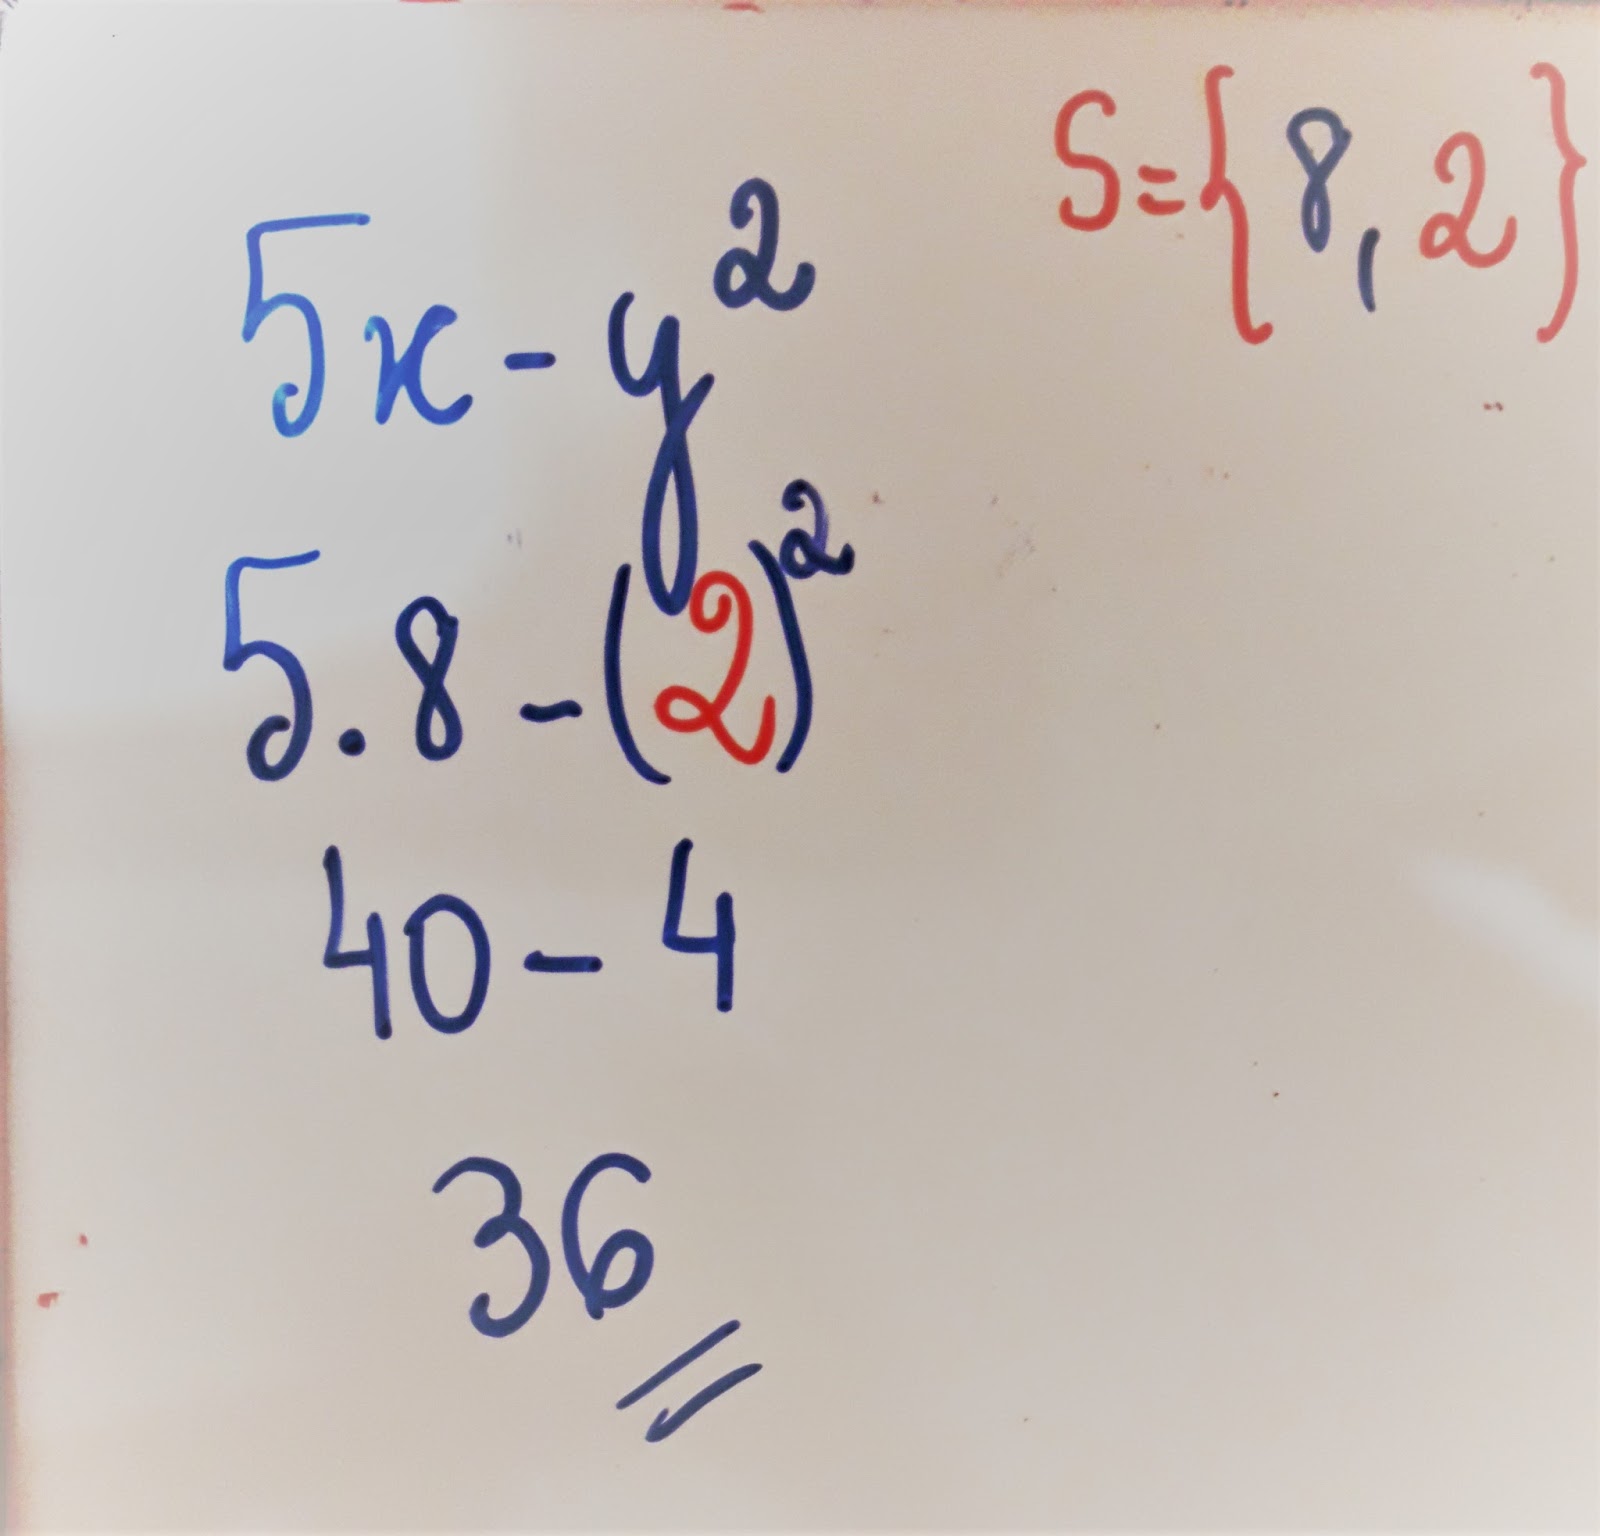 S={8,2}
5x-y²
5.8-(2)²
40-4
36